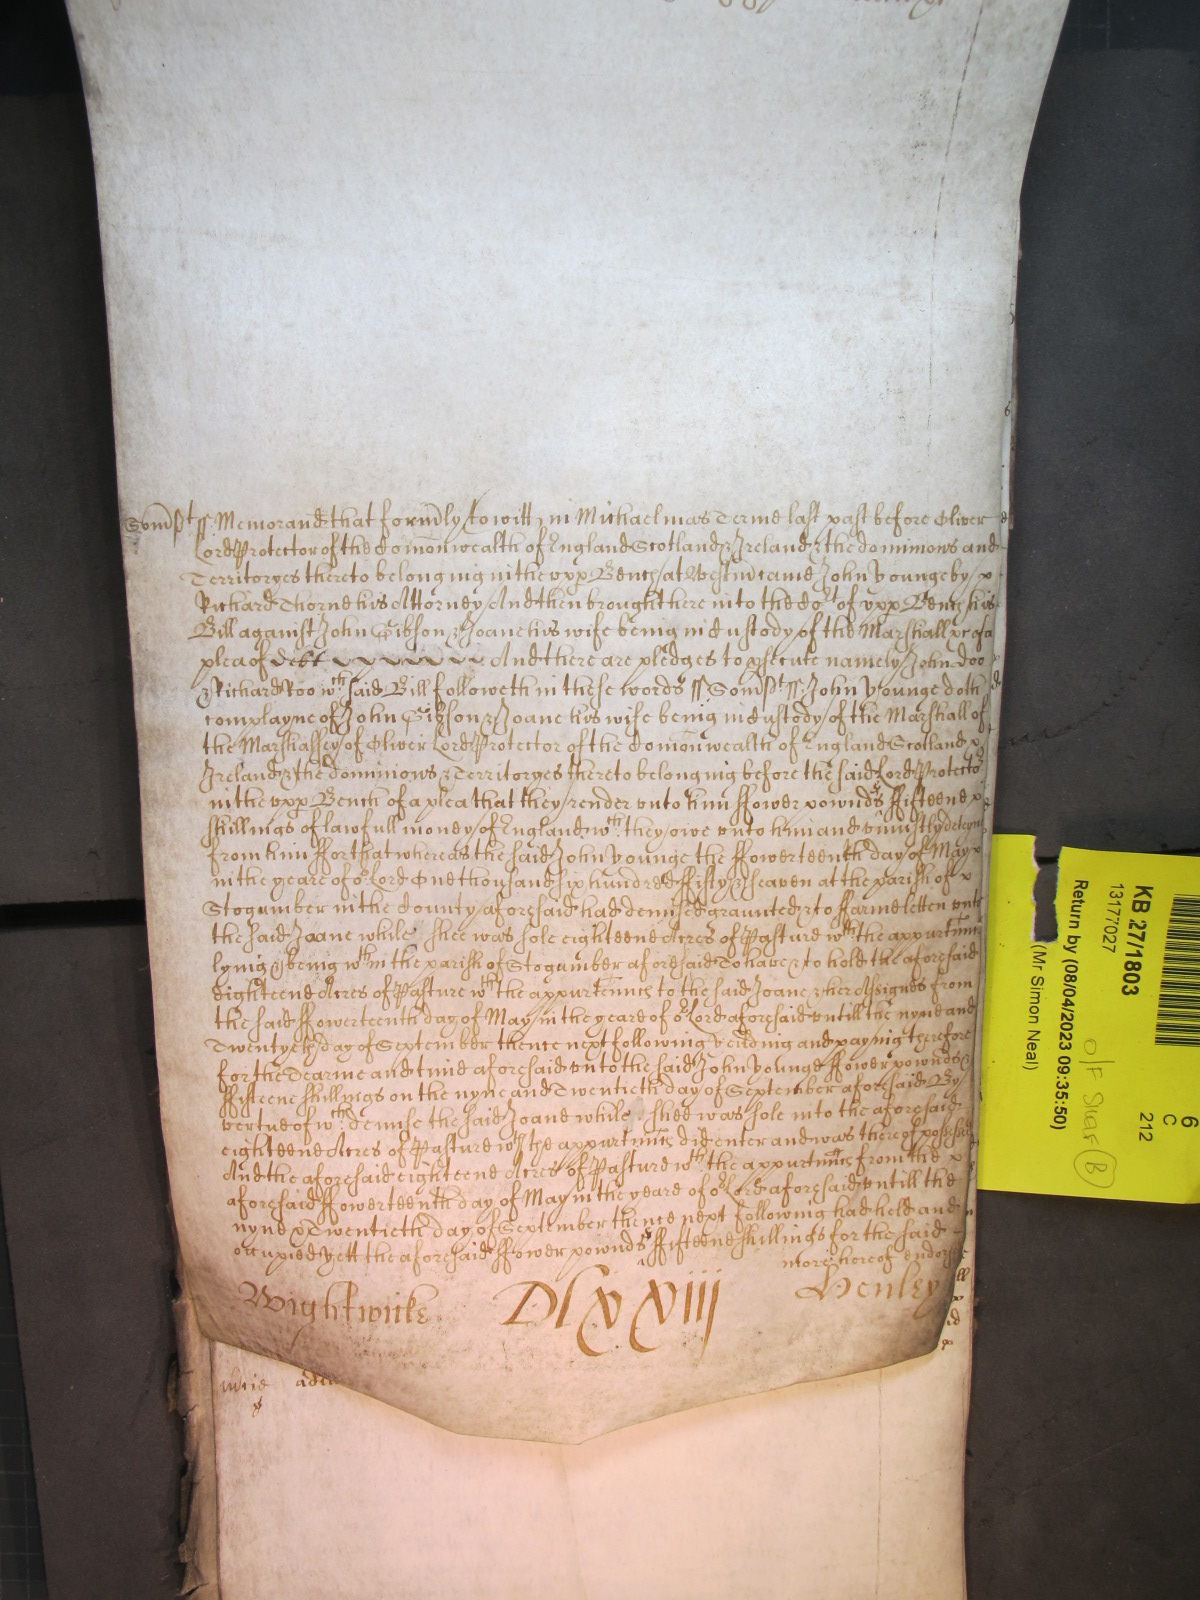 Somst ss Memorand that formerly to witt in Michaelmas Terme last past before Oliver
Lord Protector of the Comonwealth of England Scotland & Ireland & the dominions and
Territoryes thereto belonging in the upp Bench at Westm came John Younge by x
Richard Thorne his Attorney And then brought here into the Cort of upp Bench his
Bill against John Gibson & Joane his wife being in Custody of the Marshall &c of a
plea of debt And there are pledges to psecute namely John Doo
& Richard Roo wch said Bill followeth in these words ss Somst ss John Younge doth
complayne of John Gibson & Joane his wife being in Custody of the Marshall of
the Marshallsey of Oliver Lord Protector of the Comonwealth of England Scotland x
Ireland & the dominions & Territoryes thereto belonging before the said Lord Protector
in the upp Bench of a plea that they render unto him ffower pownds & ffifteene x
shillings of lawfull money of England wch they owe unto him and uniustly deteyne
from him ffor that whereas the said John Younge the ffowerteenth day of May x
in the yeare of or Lord One thousand six hundred ffifty & seaven at the parish of x
Stogumber in the County aforesaid had demised graunted & to ffarme letten unto
the said Joane while shee was sole eighteene Acres of Pasture wth the appurtnncs
lyinge & being wthin the parish of Stogumber aforesaid To have & to hold the aforesaid
eighteene Acres of Pasture wth the appurtenncs to the said Joane & her Assignes from
the said ffowerteenth day of May in the yeare of or Lord aforesaid untill the nyne and
Twentyeth day of September thence next following Yeilding and paying therefore
for the Tearme and time aforesaid unto the said John Younge ffower pownds &
ffifteene shillings on the nyne and Twentieth day of September aforesaid By
vertue of wch demise the said Joane while shee was sole into the aforesaid
eighteene Acres of Pasture wth the appurtnncs did enter and was thereof possessed
And the aforesaid eighteene Acres of Pasture wth the appurtnncs from the x
aforesaid ffowerteenth day of May in the yeare of or Lord aforesaid untill the
nyne & Twentieth day of September thence next following had held and
occupied yett the aforesaid ffower pownds & ffifteene shillings for the said
more hereof endorse
Wightwicke Dlxxviii Henley
KB 27/1803
13177027
Return by (08/04/2023 09:35:50)
(Mr Simon Neal)
6
C
212
O/F
B